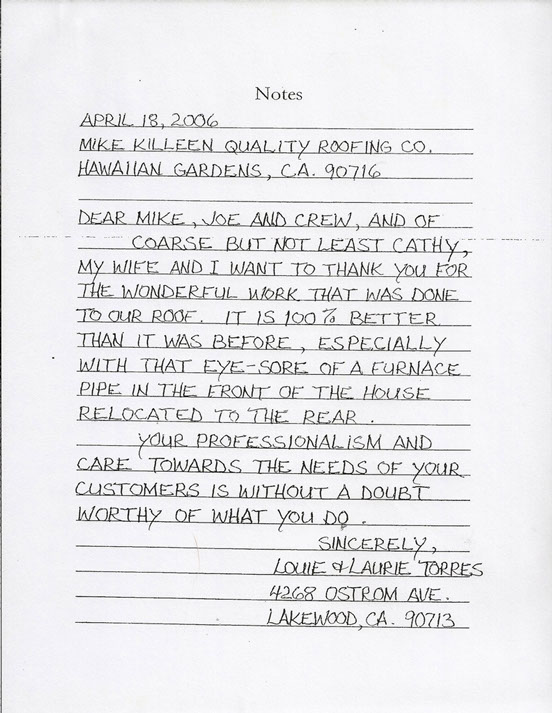 Notes
APRIL 18, 2006
MIKE KILLEEN QUALITY ROOFING CO.
HAWAIIAN GARDENS, CA. 90716
DEAR MIKE, JOE AND CREW, AND OF
COARSE BUT NOT LEAST CATHY,
MY WIFE AND I WANT TO THANK YOU FOR
THE WONDERFUL WORK THAT WAS DONE
TO OUR ROOF. IT IS 100% BETTER
THAN IT WAS BEFORE, ESPECIALLY
WITH THAT EYE-SORE OF A FURNACE
PIPE IN THE FRONT OF THE HOUSE
RELOCATED TO THE REAR.
YOUR PROFESSIONALISM AND
CARE TOWARDS THE NEEDS OF YOUR
CUSTOMERS IS WITHOUT A DOUBT
WORTHY OF WHAT YOU DO.
SINCERELY,
LOUIE & LAURIE TORRES
4268 OSTROM AVE.
LAKEWOOD, CA. 90713